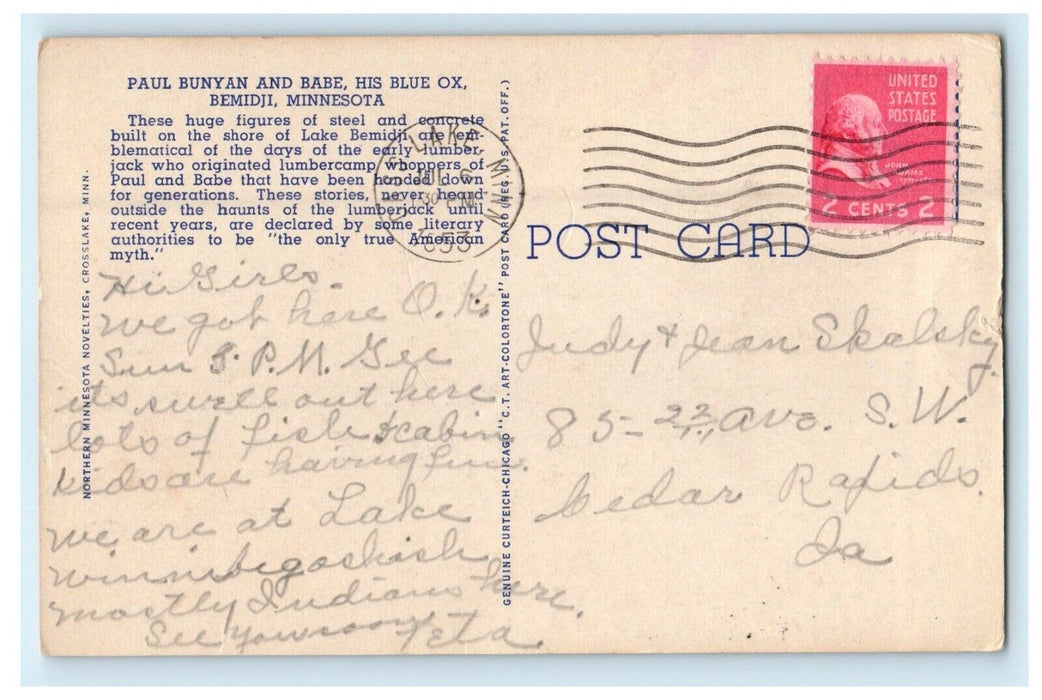 PAUL BUNYAN AND BABE, HIS BLUE OX,
BEMIDJI, MINNESOTA
These huge figures of steel and concrete
built on the shore of Lake Bemidji are em-
blematical of the days of the early lumber-
jack who originated lumbercamp whoppers of
Paul and Babe that have been handed down
for generations. These stories, never heard
outside the haunts of the lumberjack until
recent years, are declared by some literary
authorities to be "the only true American
myth."
NORTHERN MINNESOTA NOVELTIES, CROSSLAKE, MINN.
Hi Girls.
We got here O.K.
Sun 3 P.M. Gee
its swell out here
lots of fish & cabin
kids are having fun.
We are at Lake
Winnibigoshish
mostly Indians here.
See you soon Teta
GENUINE CURTEICH-CHICAGO "C.T. ART-COLORTONE" POST CARD (REG. U.S. PAT. OFF.)
LAKE MINN
JUL 6
30
1953
UNITED
STATES
POSTAGE
JOHN
ADAMS
2 CENTS 2
POST CARD
Judy & Jean Skalsky
85-22 Ave. S.W.
Cedar Rapids.
Ia